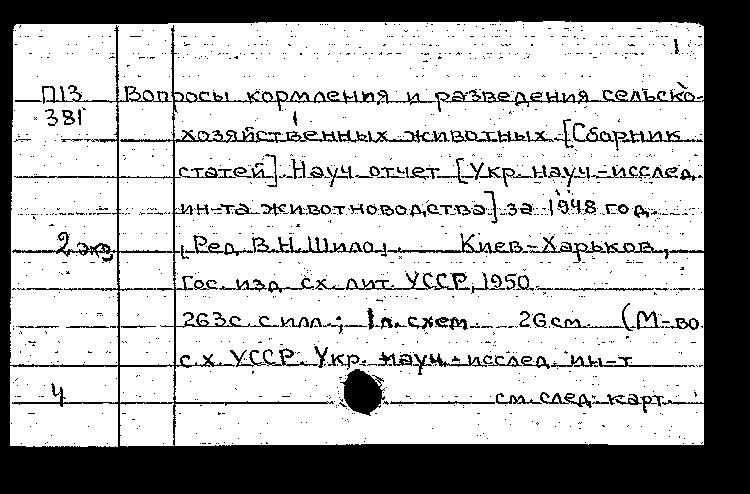 1
П13 Вопросы кормления и разведения сельско-
381
хозяйственных животных [Сборник
статей]. Науч. отчет [Укр. науч.-исслед.
ин-та животноводства] за 1948 год.
2 экз [Ред. В.Н. Шило]. Киев-Харьков,
Гос. изд. сх. лит. УССР, 1950.
263с. с илл.; 1 л. схем. 26см. (М-во
с.х. УССР. Укр. науч.-исслед. ин-т
4 см. след. карт.